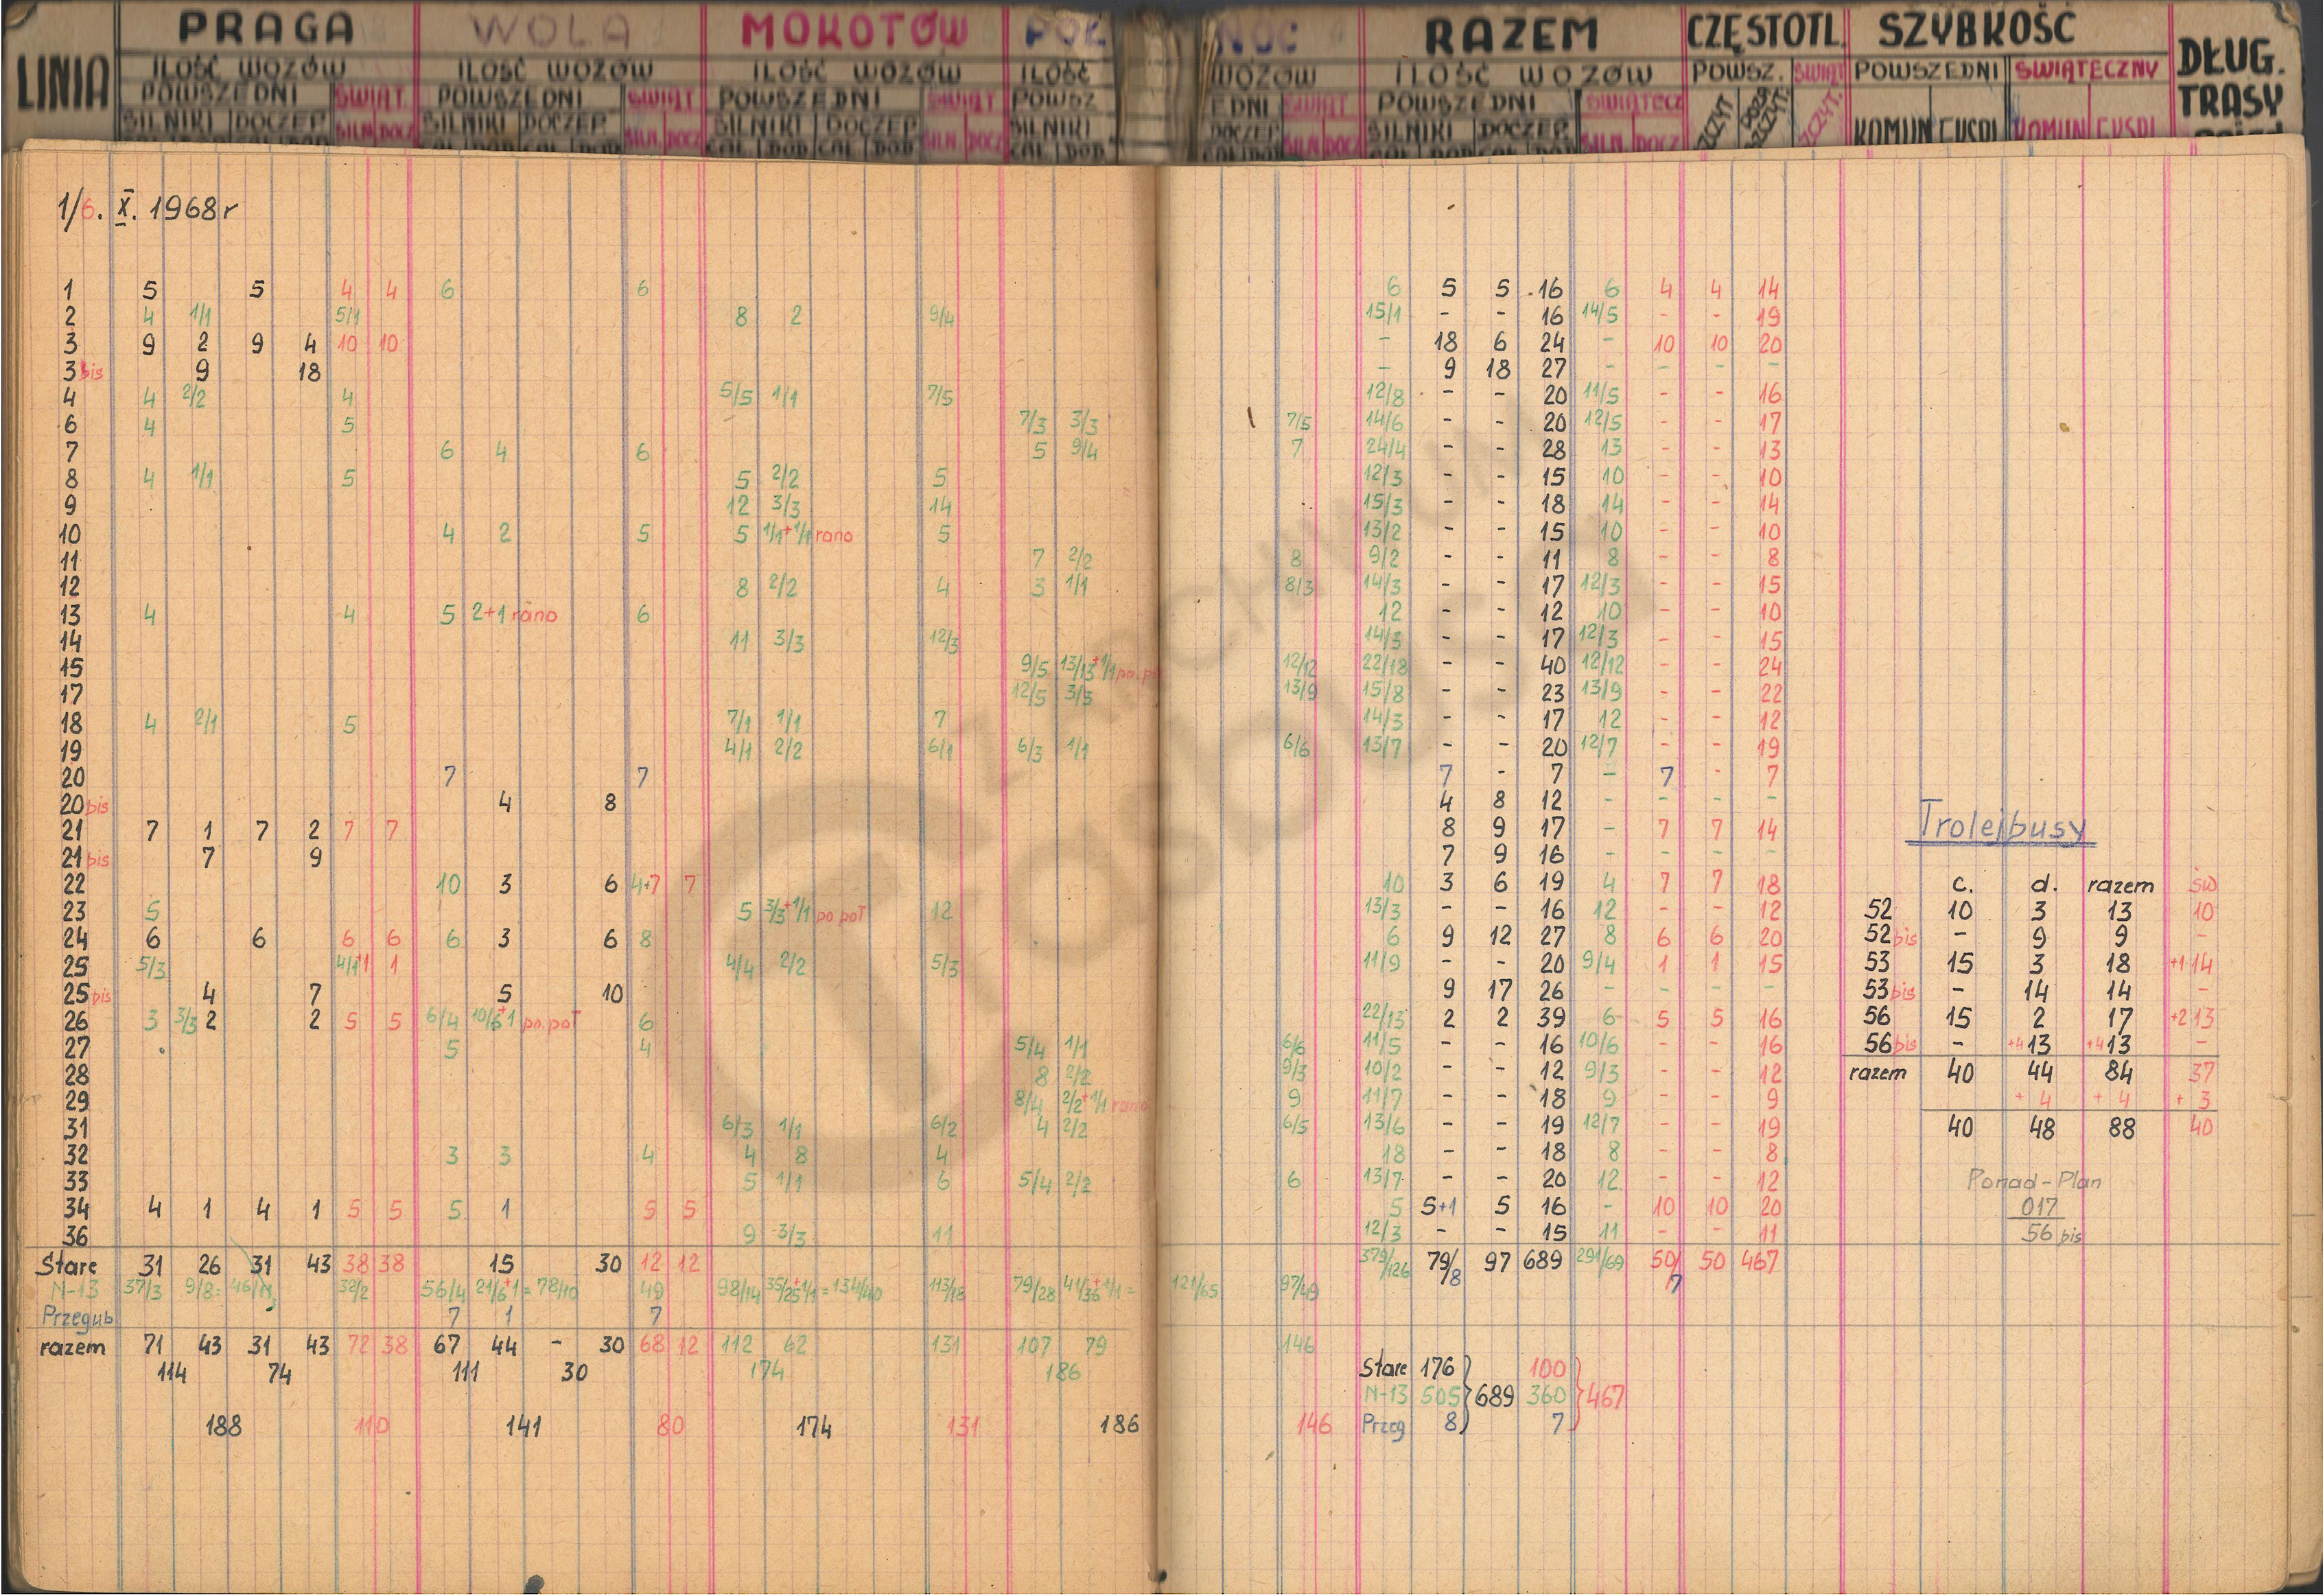 LINIA PRAGA WOLA MOKOTÓW PÓŁ NOC RAZEM CZĘSTOTL. SZYBKOŚĆ DŁUG. TRASY
ILOŚĆ WOZÓW ILOŚĆ WOZÓW ILOŚĆ WOZÓW ILOŚĆ WOZÓW ILOŚĆ WOZÓW POWSZ. ŚWIĄT POWSZEDNI ŚWIĄTECZNY
POWSZEDNI ŚWIĄT. POWSZEDNI ŚWIĄT POWSZEDNI ŚWIĄT POWSZ EDNI ŚWIĄT POWSZEDNI ŚWIĄTECZ SZCZYT POZA SZCZYT. SZCZYT.
SILNIKI DOCZEP SILN. DOCZ SILNIKI DOCZEP SILN. DOCZ SILNIKI DOCZEP SILN. DOCZ SILNIKI DOCZEP SILN. DOCZ SILNIKI DOCZEP SILN. DOCZ KOMUN EKSPL KOMUN EKSPL
CAŁ DOD CAŁ DOD CAŁ DOD CAŁ DOD CAŁ DOD CAŁ DOD
1/6. X. 1968 r
1 5 5 4 4 6 6 6 5 5 16 6 4 4 14
2 4 1/1 5/1 8 2 9/4 15/1 - - 16 14/5 - - 19
3 9 2 9 4 10 10 - 18 6 24 - 10 10 20
3 bis 9 18 - 9 18 27 - - - -
4 4 2/2 4 5/5 1/1 7/5 12/8 - - 20 11/5 - - 16
6 4 5 7/3 3/3 7/5 14/6 - - 20 12/5 - - 17
7 6 4 6 5 9/4 7 24/4 - - 28 13 - - 13
8 4 1/1 5 5 2/2 5 12/3 - - 15 10 - - 10
9 12 3/3 14 15/3 - - 18 14 - - 14
10 4 2 5 5 1/1+1/1 rano 5 13/2 - - 15 10 - - 10
11 7 2/2 8 9/2 - - 11 8 - - 8
12 8 2/2 4 3 1/1 8/3 14/3 - - 17 12/3 - - 15
13 4 4 5 2+1 rano 6 12 - - 12 10 - - 10
14 11 3/3 12/3 14/3 - - 17 12/3 - - 15
15 9/5 13/13+1/1 po. p 12/12 22/18 - - 40 12/12 - - 24
17 12/5 3/3 13/9 15/8 - - 23 13/9 - - 22
18 4 2/1 5 7/1 1/1 7 14/3 - - 17 12 - - 12
19 4/1 2/2 6/1 6/3 1/1 6/6 13/7 - - 20 12/7 - - 19
20 7 7 7 - 7 - 7 - 7
20 bis 4 8 4 8 12 - - - -
21 7 1 7 2 7 7 8 9 17 - 7 7 14
21 bis 7 9 7 9 16 - - - -
22 10 3 6 4+7 7 10 3 6 19 4 7 7 18
23 5 5 3/3+1/1 po poł 12 13/3 - - 16 12 - - 12
24 6 6 6 6 6 3 6 8 6 9 12 27 8 6 6 20
25 5/3 4/1+1 1 4/4 2/2 5/3 11/9 - - 20 9/4 1 1 15
25 bis 4 7 5 10 9 17 26 - - - -
26 3 3/3 2 2 5 5 6/4 10/6+1 po. poł 6 22/13 2 2 39 6 5 5 16
27 5 4 5/4 1/1 6/6 11/5 - - 16 10/6 - - 16
28 8 2/2 9/3 10/2 - - 12 9/3 - - 12
29 8/4 2/2+1/1 rano 9 11/7 - - 18 9 - - 9
31 6/3 1/1 6/2 4 2/2 6/5 13/6 - - 19 12/7 - - 19
32 3 3 4 4 8 4 18 - - 18 8 - - 8
33 5 1/1 6 5/4 2/2 6 13/7 - - 20 12 - - 12
34 4 1 4 1 5 5 5 1 5 5 5 5+1 5 16 - 10 10 20
36 9 3/3 11 12/3 - - 15 11 - - 11
Stare 31 26 31 43 38 38 15 30 12 12 379/126 79/8 97 689 291/69 50/7 50 467
N-13 37/3 9/8= 46/11 32/2 56/4 21/6+1=78/10 49 98/14 35/25+1/1=134/40 113/18 79/28 41/36+1/1= 121/65 97/49
Przegub 7 1 7
razem 71 43 31 43 72 38 67 44 - 30 68 12 112 62 131 107 79 146
114 74 111 30 174 186
188 110 141 80 174 131 186 146
Stare 176 100
N-13 505 689 360 467
Przeg 8 7
Trolejbusy
c. d. razem św
52 10 3 13 10
52 bis - 9 9 -
53 15 3 18 +1 14
53 bis - 14 14 -
56 15 2 17 +2 13
56 bis - +4 13 +4 13 -
razem 40 44 84 37
+ 4 + 4 + 3
40 48 88 40
Ponad-Plan
017
56 bis